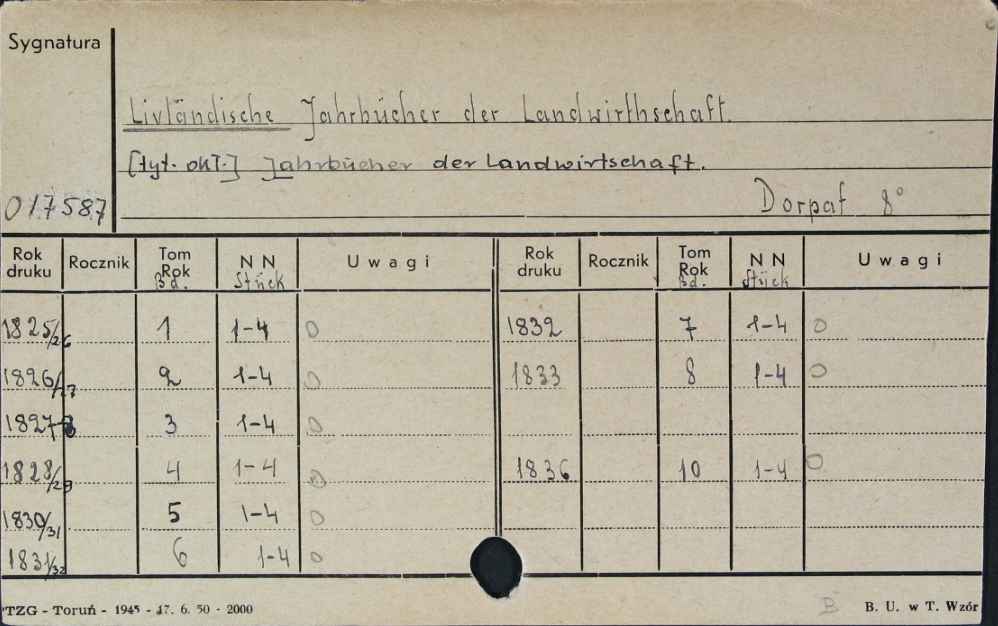 Sygnatura
Livländische Jahrbücher der Landwirthschaft.
[tyt. okł.] Jahrbücher der Landwirtschaft.
017587 Dorpat 8°
Rok druku Rocznik Tom Rok Bd. NN Stück Uwagi Rok druku Rocznik Tom Rok Bd. NN Stück Uwagi
1825/26 1 1-4 0 1832 7 1-4 0
1826/27 2 1-4 0 1833 8 1-4 0
1827-8 3 1-4 0
1828/29 4 1-4 0 1836 10 1-4 0
1830/31 5 1-4 0
1831/32 6 1-4 0
PTZG - Toruń - 1945 - 17. 6. 50 - 2000 B B. U. w T. Wzór